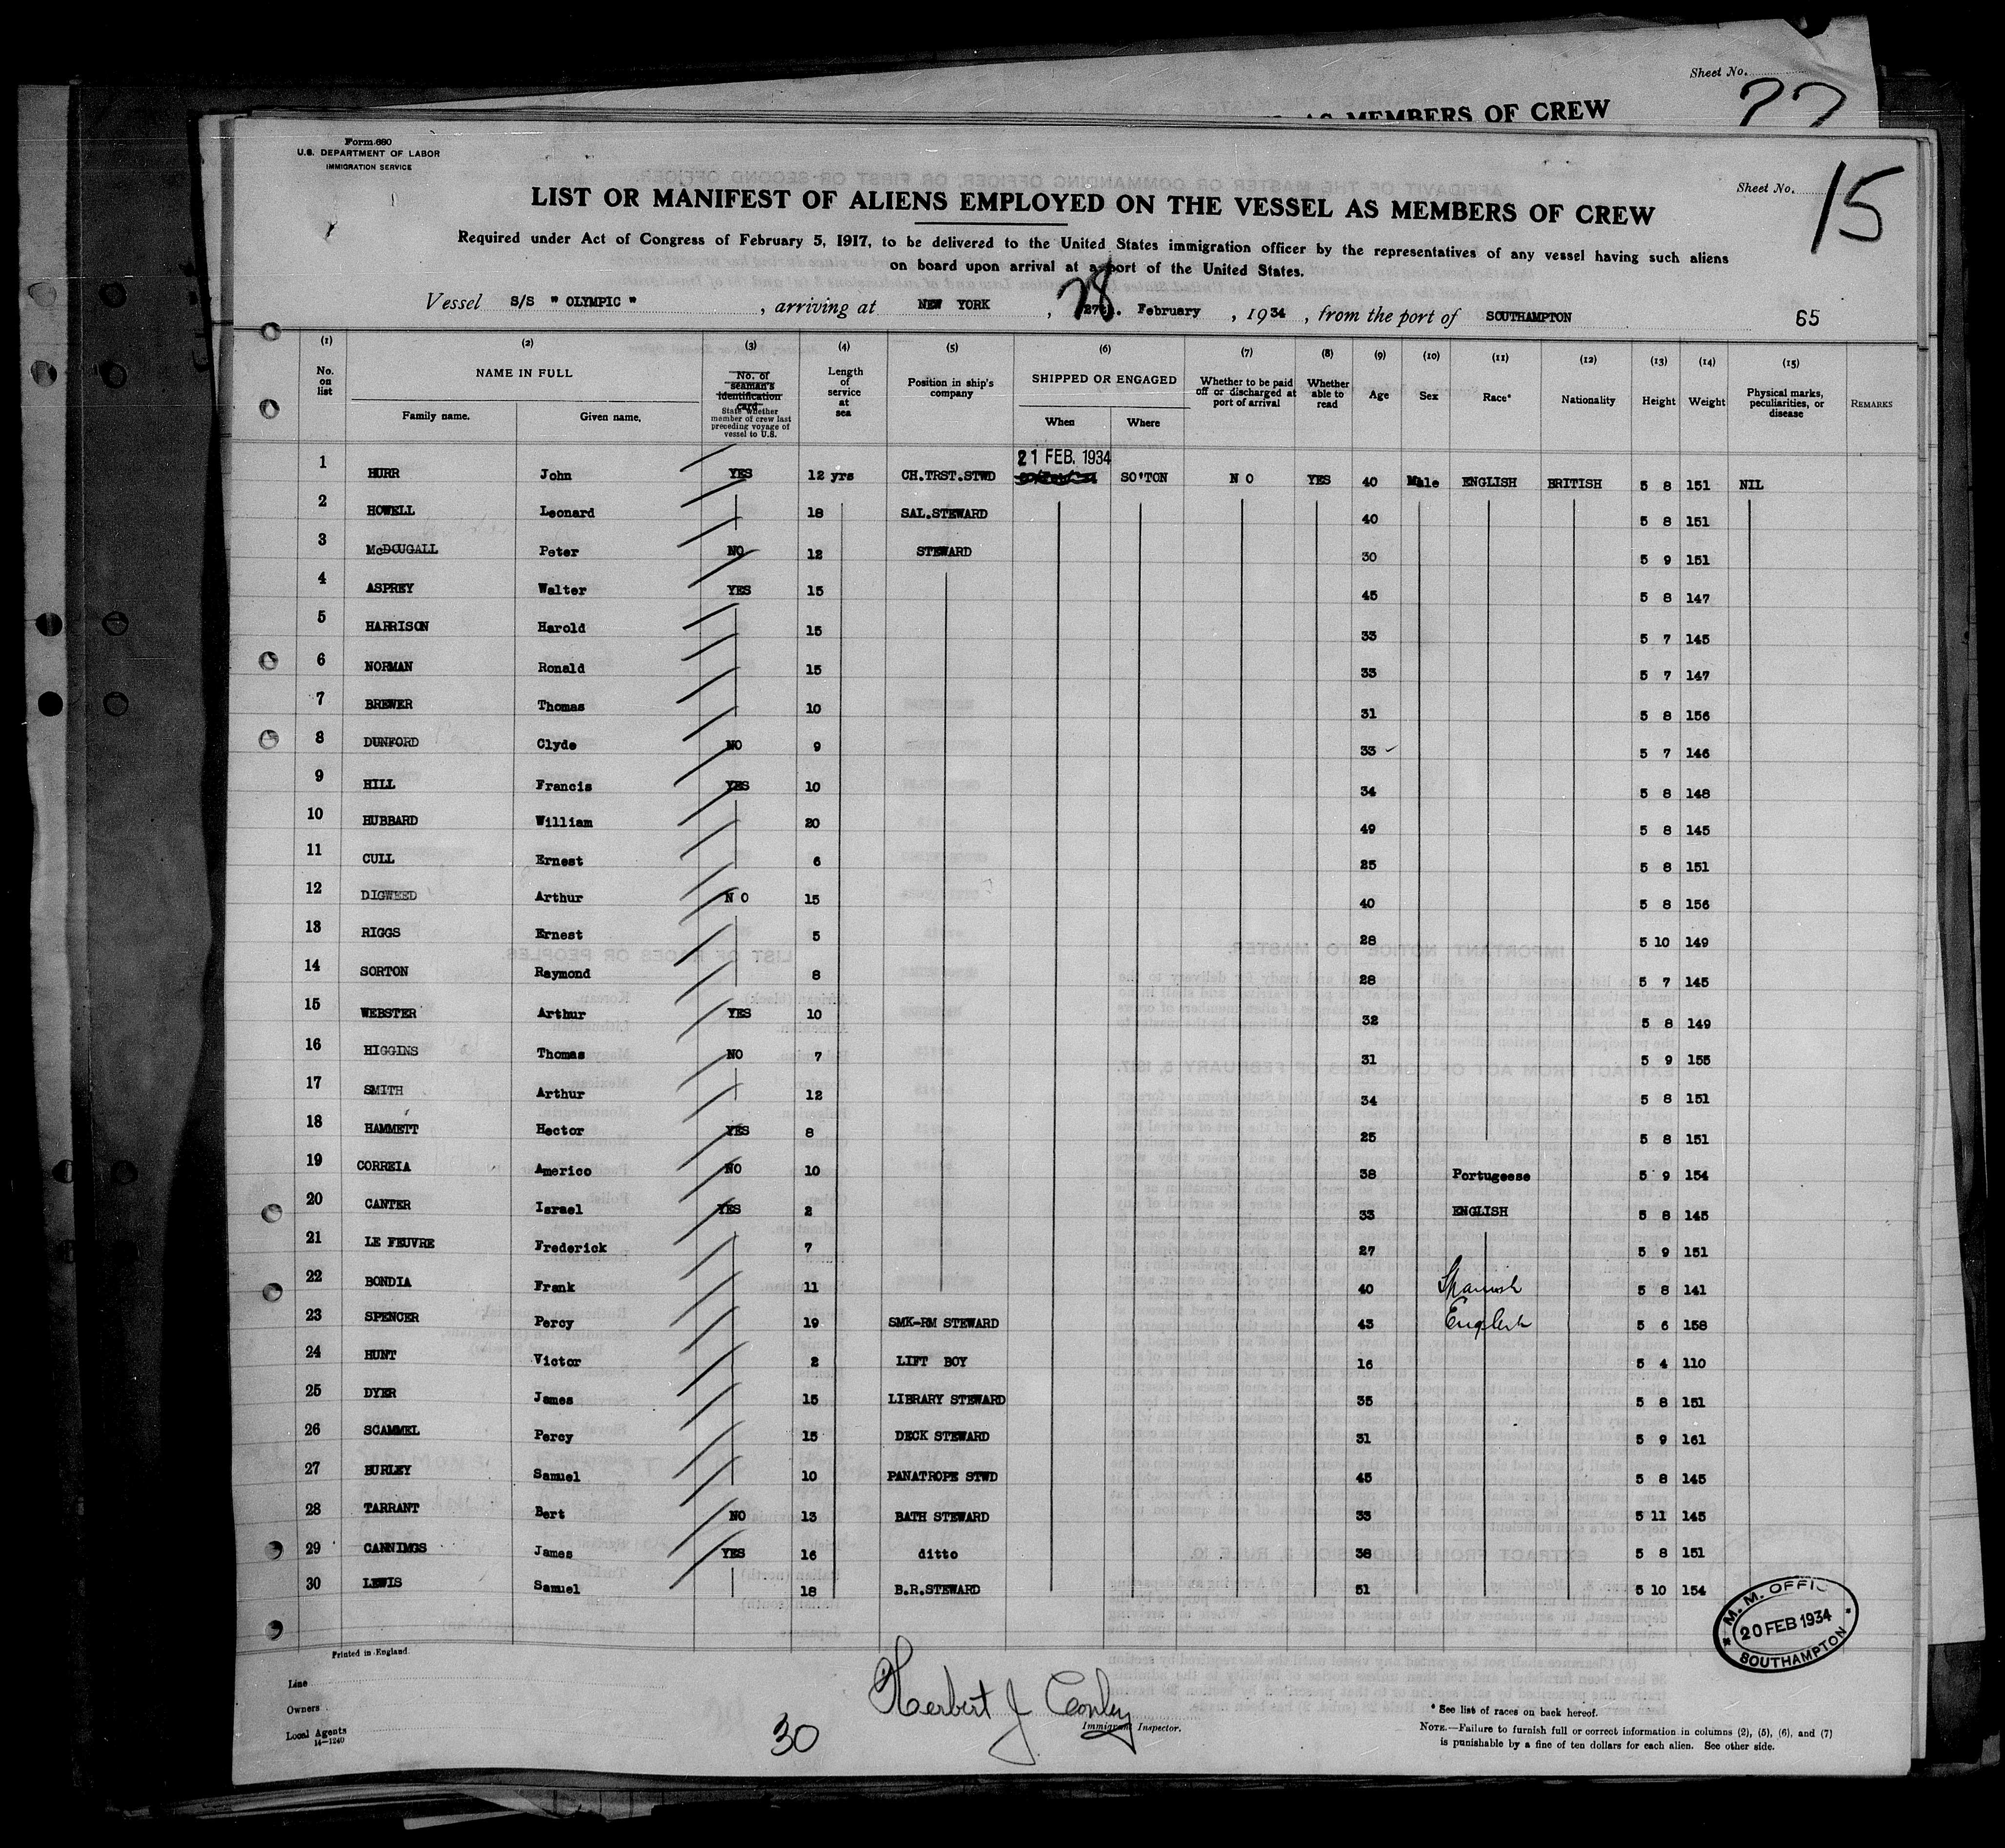 Sheet No.
AS MEMBERS OF CREW
Form 680
U.S. DEPARTMENT OF LABOR
IMMIGRATION SERVICE
Sheet No. 15
LIST OR MANIFEST OF ALIENS EMPLOYED ON THE VESSEL AS MEMBERS OF CREW
Required under Act of Congress of February 5, 1917, to be delivered to the United States immigration officer by the representatives of any vessel having such aliens
on board upon arrival at a port of the United States.
Vessel S/S " OLYMPIC " , arriving at NEW YORK , 28 February , 1934 , from the port of SOUTHAMPTON 65
(1) (2) (3) (4) (5) (6) (7) (8) (9) (10) (11) (12) (13) (14) (15)
No. on list NAME IN FULL Family name. Given name. No. of seaman's identification card State whether member of crew last preceding voyage of vessel to U.S. Length of service at sea Position in ship's company SHIPPED OR ENGAGED When Where Whether to be paid off or discharged at port of arrival Whether able to read Age Sex Race* Nationality Height Weight Physical marks, peculiarities, or disease REMARKS
21 FEB. 1934
1 HURR John YES 12 yrs CH.TRST.STWD SO'TON N O YES 40 Male ENGLISH BRITISH 5 8 151 NIL
2 HOWELL Leonard 18 SAL.STEWARD 40 5 8 151
3 McDOUGALL Peter NO 12 STEWARD 30 5 9 151
4 ASPREY Walter YES 15 45 5 8 147
5 HARRISON Harold 15 33 5 7 145
6 NORMAN Ronald 15 33 5 7 147
7 BREWER Thomas 10 31 5 8 156
8 DUNFORD Clyde NO 9 33 5 7 146
9 HILL Francis YES 10 34 5 8 148
10 HUBBARD William 20 49 5 8 145
11 CULL Ernest 6 25 5 8 151
12 DIGWEED Arthur N O 15 40 5 8 156
13 RIGGS Ernest 5 28 5 10 149
14 SORTON Raymond 8 28 5 7 145
15 WEBSTER Arthur YES 10 32 5 8 149
16 HIGGINS Thomas NO 7 31 5 9 155
17 SMITH Arthur 12 34 5 8 151
18 HAMMETT Hector YES 8 25 5 8 151
19 CORREIA Americo NO 10 38 Portugeese 5 9 154
20 CANTER Israel YES 2 33 ENGLISH 5 8 145
21 LE FEUVRE Frederick 7 27 5 9 151
22 BONDIA Frank 11 40 Spanish 5 8 141
23 SPENCER Percy 19 SMK-RM STEWARD 43 English 5 6 158
24 HUNT Victor 2 LIFT BOY 16 5 4 110
25 DYER James 15 LIBRARY STEWARD 35 5 8 151
26 SCAMMEL Percy 15 DECK STEWARD 31 5 9 161
27 BURLEY Samuel 10 PANATROPE STWD 45 5 8 145
28 TARRANT Bert NO 13 BATH STEWARD 33 5 11 145
29 CANNINGS James YES 16 ditto 38 5 8 151
30 LEWIS Samuel 18 B.R.STEWARD 51 5 10 154
M. M. OFFIC
20 FEB 1934
SOUTHAMPTON
Printed in England.
Line
Owners
Local Agents
14-1240
30
Herbert J Conley
Immigrant Inspector.
* See list of races on back hereof.
NOTE.—Failure to furnish full or correct information in columns (2), (5), (6), and (7)
is punishable by a fine of ten dollars for each alien. See other side.